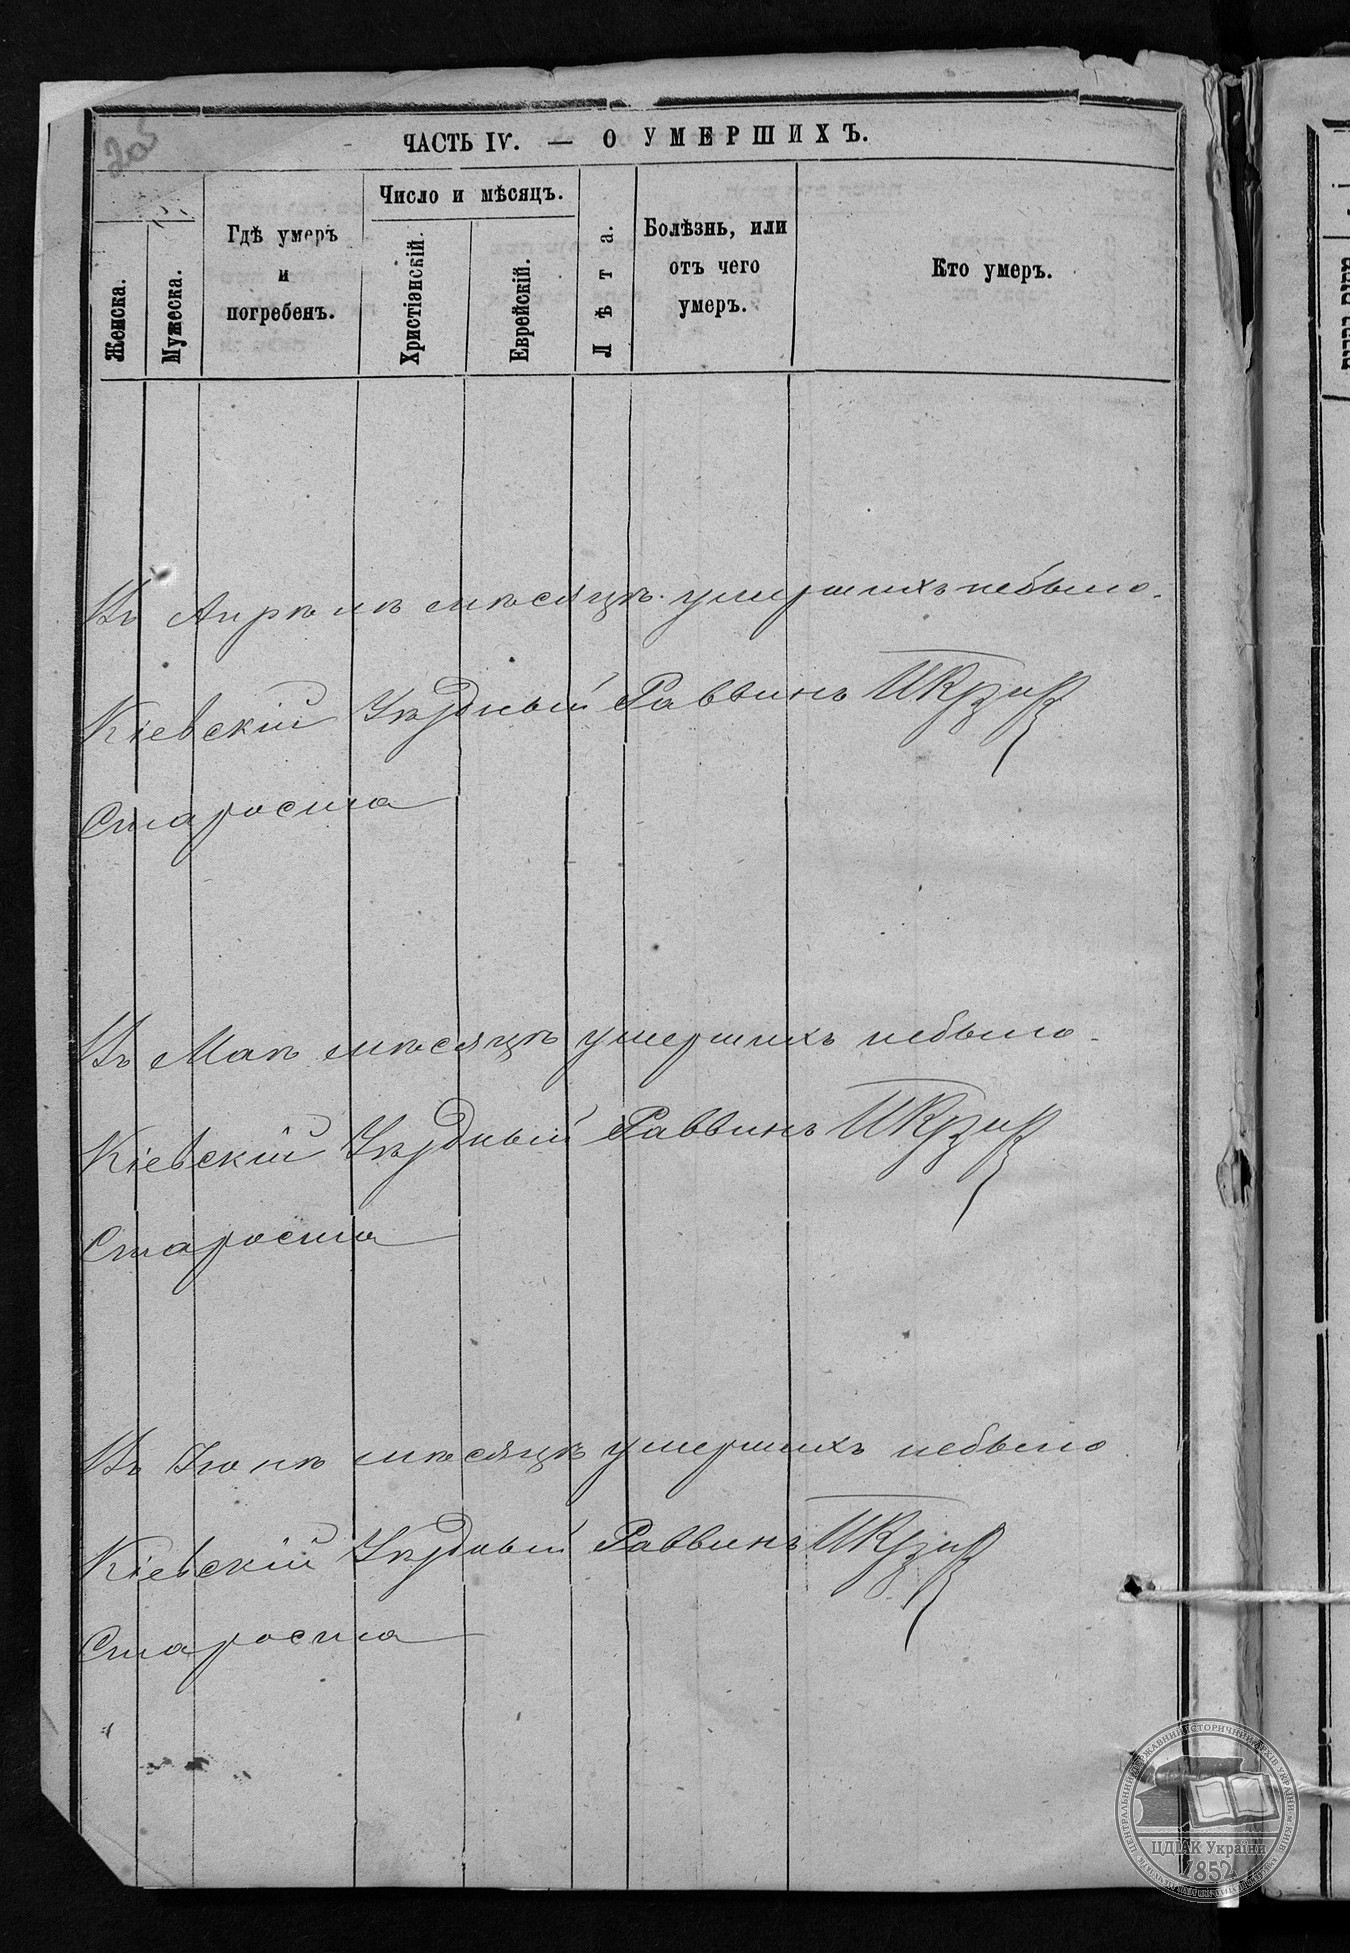 ЧАСТЬ IV. — О УМЕРШИХЪ.
Женска.
Мужеска.
Гдѣ умеръ
и
погребенъ.
Число и мѣсяцъ.
Христіанскій.
Еврейскій.
Лѣта.
Болѣзнь, или
отъ чего
умеръ.
Кто умеръ.
Въ Апрѣлѣ мѣсяцѣ умершихъ небыло.
Кіевскій Уѣздный Раввинъ
Староста
Въ Маѣ мѣсяцѣ умершихъ небыло
Кіевскій Уѣздный Раввинъ
Староста
Въ Іюнѣ мѣсяцѣ умершихъ небыло
Кіевскій Уѣздный Раввинъ
Староста
ЦДІАК України
1852